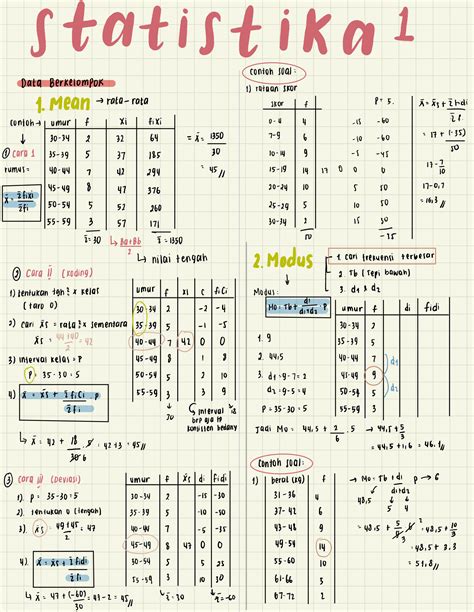 Statistika 1
Data Berkelompok
1. Mean → rata-rata
contoh →
umur f Xi fiXi
30-34 2 32 64
35-39 5 37 185
40-44 7 42 294
45-49 8 47 376
50-54 5 52 260
55-59 3 57 171
Σ=30 Σ=1350
① Cara 1
rumus =
x̄ = Σfixi / Σfi
x̄ = 1350 / 30
= 45 //
Ba+Bb / 2
nilai tengah
② Cara II (koding)
1) tentukan tgh² x kelas
(taro 0)
2) cari x̄s = rata² sementara
x̄s = 44+40 / 2 = 42
3) interval kelas = P
P = 35-30 = 5
4) x̄ = x̄s + Σfici / Σfi · P
umur f xi c fiCi
30-34 2 -2 -4
35-39 5 -1 -5
40-44 7 42 0 0
45-49 8 1 8
50-54 5 2 10
55-59 3 3 9
30 18
interval
brp aja tp
konsisten bedany
↳ x̄ = 42 + 18 / 30 · 5 = 42+3 = 45 //
③ Cara III (Deviasi)
1) P = 35-30 = 5
2) tentukan 0 (tengah)
3) x̄s = 49+45 / 2 = 47
4) x̄ = x̄s + Σfidi / Σfi
umur f x̄s di fidi
30-34 2 -15 -30
35-39 5 -10 -50
40-44 7 -5 -35
45-49 8 47 0 0
50-54 5 5 25
55-59 3 10 30
Σ=30 Σ=-60
↳ x̄ = 47 + (-60) / 30 = 47-2 = 45 //
contoh soal:
1) rataan skor
skor f
P = 5.
0-4 4 -15 -60
7-9 6 -10 -60
10-14 9 -5 -45
15-19 14 17 0 0
20-24 10 5 50
25-29 5 10 50
30-34 2 15 30
50 -35
x̄ = x̄s + Σfidi / Σfi
= 17 + (-35) / 50
17 - 7 / 10
17-0,7
= 16,3 //
2. Modus
1. cari frekuensi terbesar
2. Tb (tepi bawah)
3. d1 & d2
Modus:
Mo = Tb + d1 / d1+d2 · P
1. 9
2. 44,5
3. d1 = 9-7 = 2
P = 35-30 = 5
umur f di fidi
30-34 2
35-39 5
40-44 7
45-49 9
50-54 5
55-59 3
d1
d2
Jadi Mo = 44,5 + 2 / 6 · 5 → 44,5 + 5 / 3
= 44,5 + 1,6 = 46,1 //
Contoh soal:
1) berat (kg) f
31-36 4
37-42 6
43-48 9
49-54 14
55-60 10
61-66 5
67-72 2
→ Mo = Tb + d1 / d1+d2 P → 6
48,5 5 4
= 48,5 + 5 / 9 · 6 = 48,5 + 10 / 3
= 48,5 + 3,3
= 51,8 //